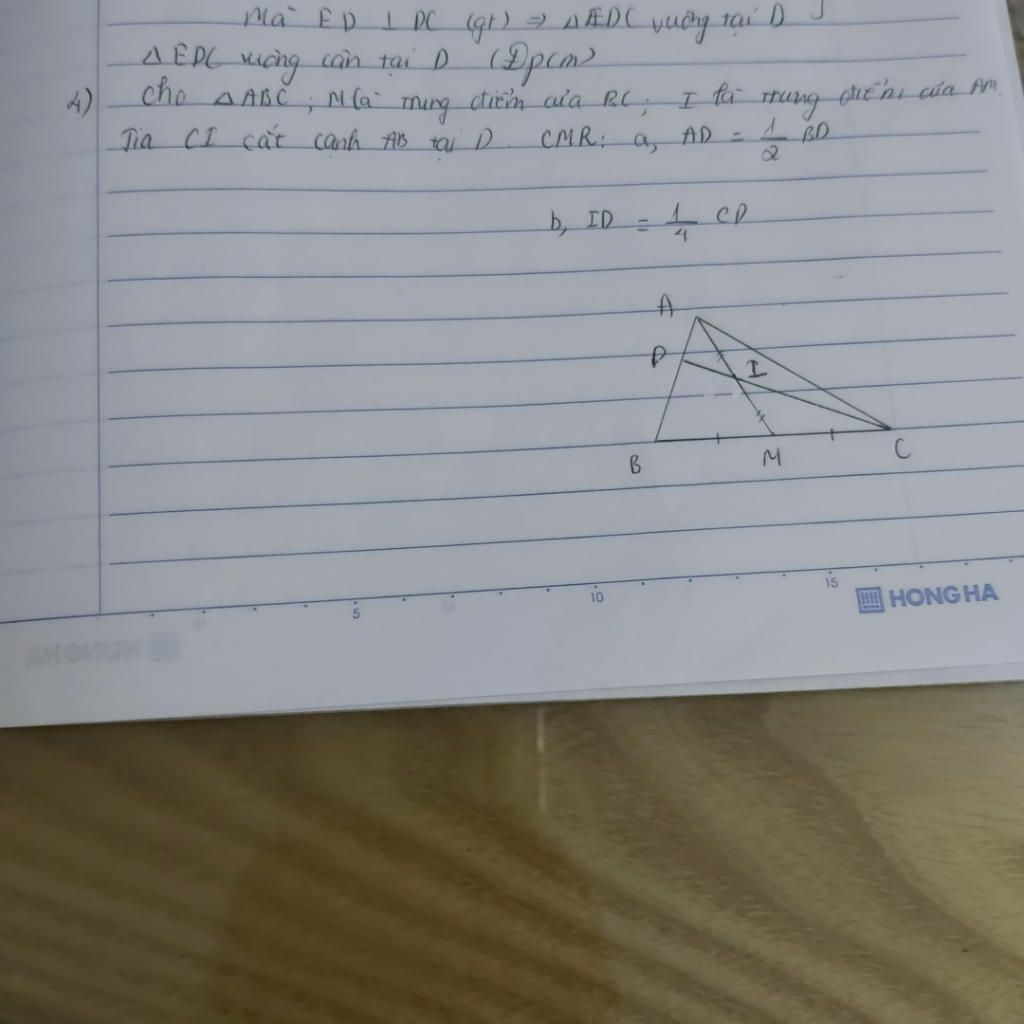 Mà ED ⊥ DC (gt) ⇒ △EDC vuông tại D
△EDC vuông cân tại D (Đpcm)
4) Cho △ABC; M là trung điểm của BC; I là trung điểm của AM.
Tia CI cắt cạnh AB tại D. CMR: a, AD = 1/2 BD
b, ID = 1/4 CD
A
D
I
B
M
C
5
10
15
HONG HA